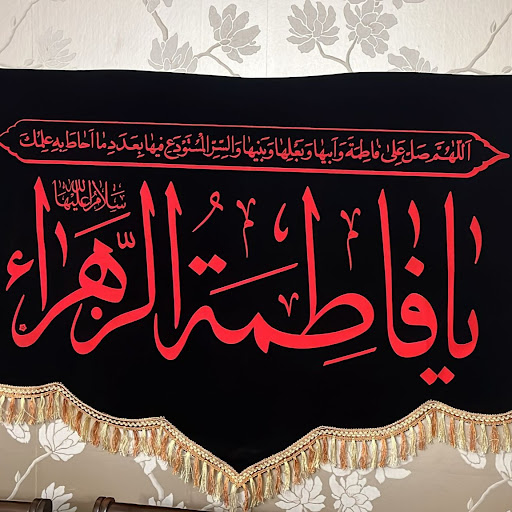 اَللّهُمَّ صَلِّ عَلی فاطِمَةَ وَ اَبیها وَ بَعْلِها وَ بَنیها وَ السِّرِّ الْمُسْتَوْدَعِ فیها بِعَدَدِ ما اَحاطَ بِهِ عِلْمُكَ
سلام الله علیها
یا فاطِمَةُ الزَّهراء